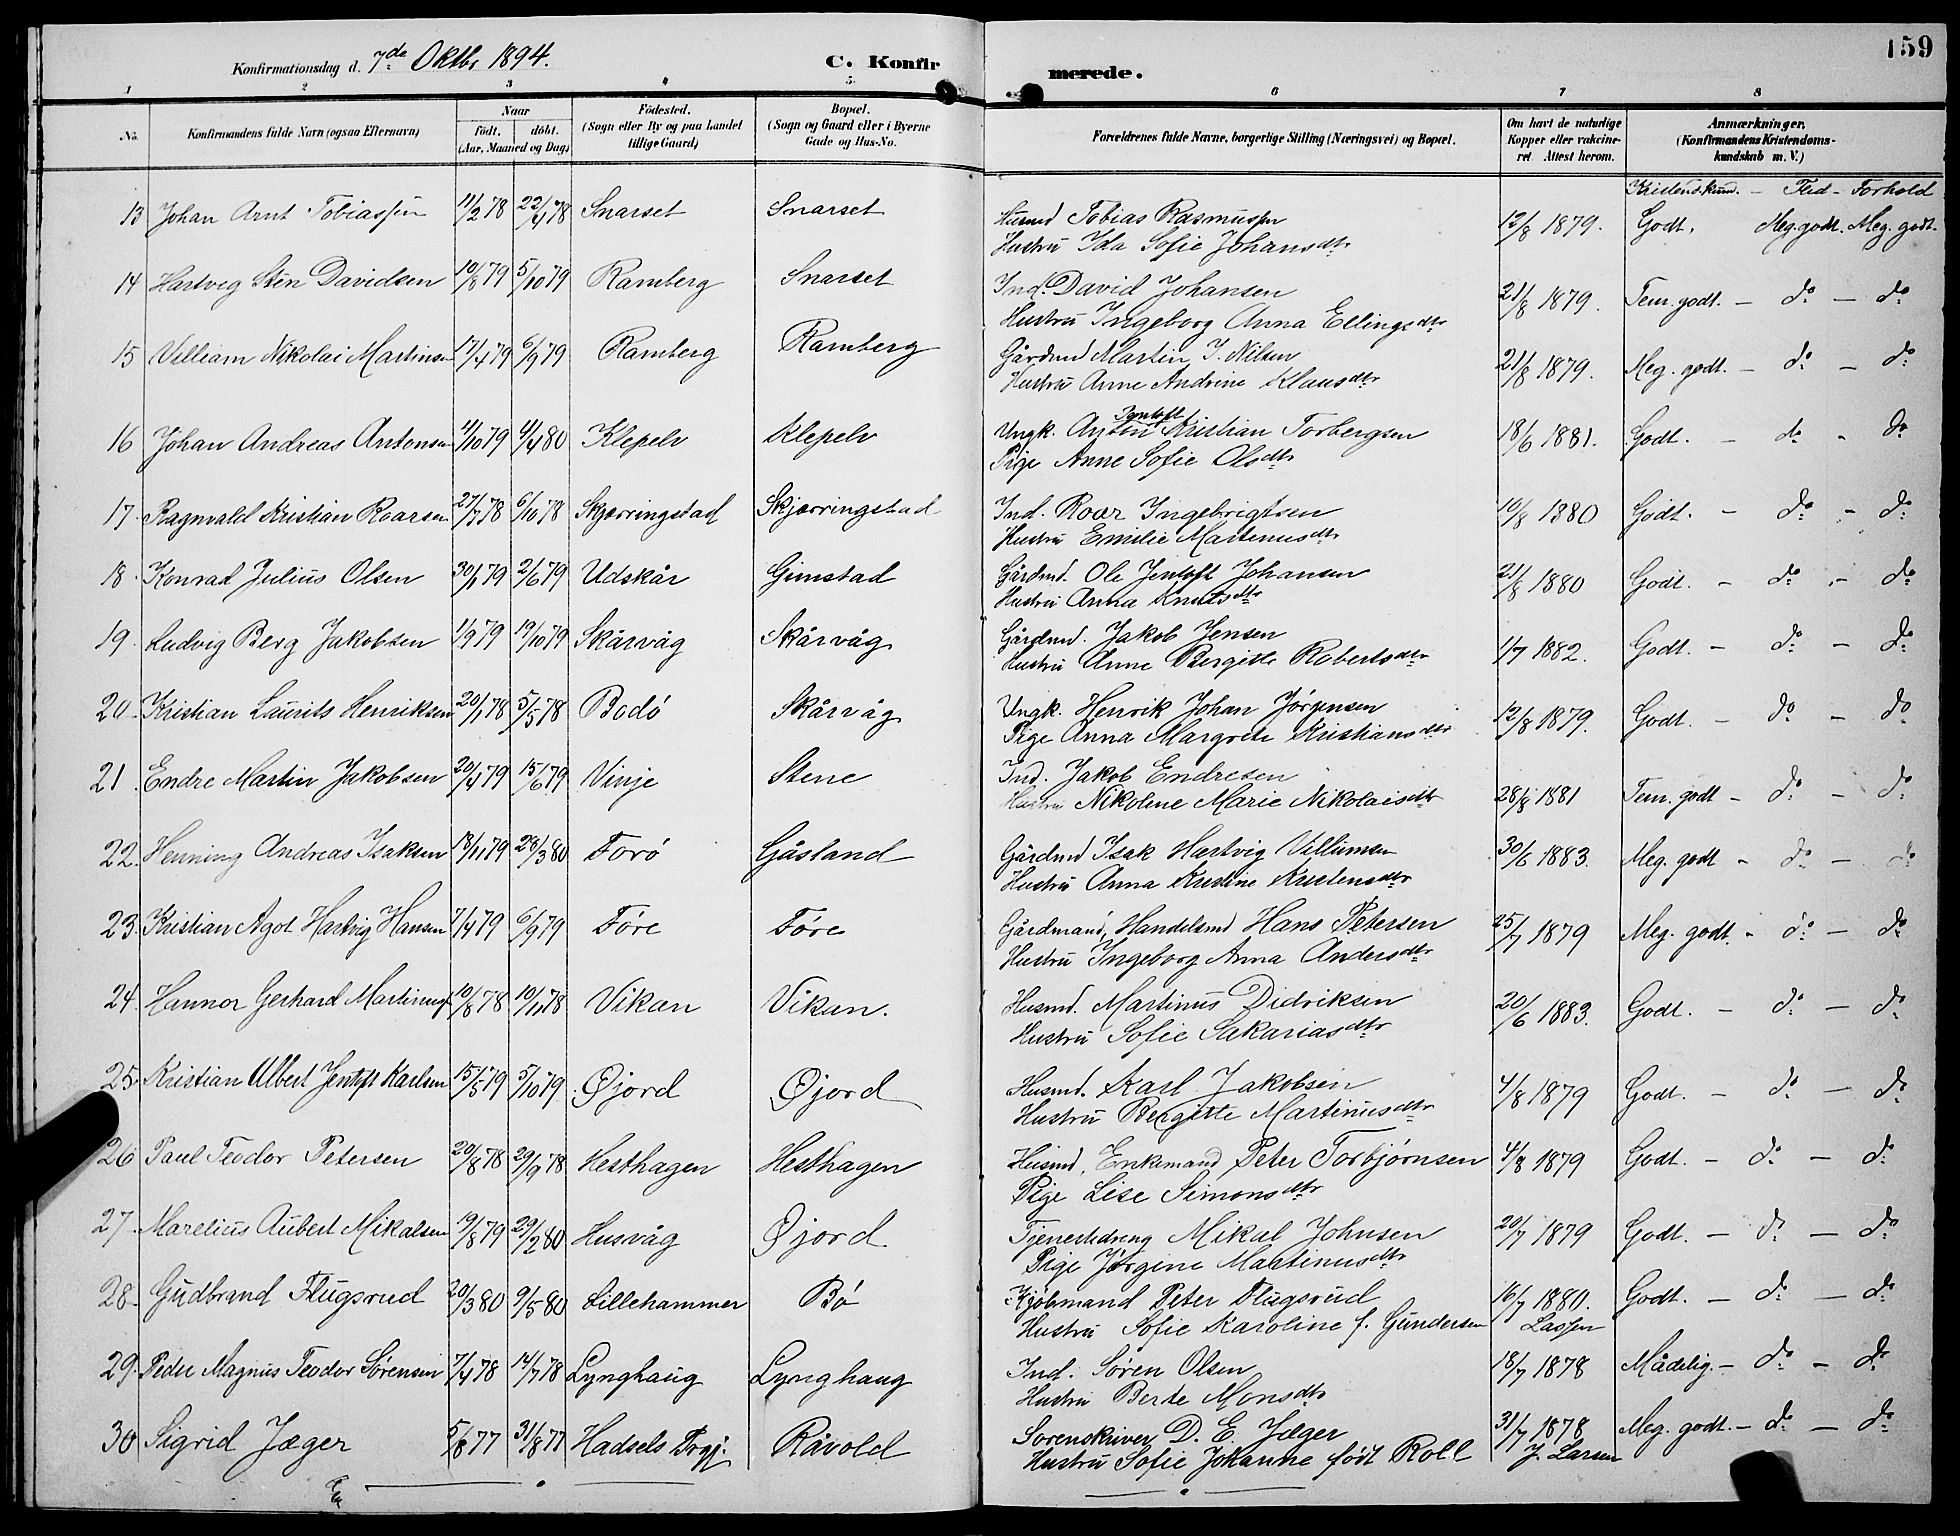 159
Konfirmationsdag d. 7de Oktbr 1894. C. Konfir merede.
1 2 3 4 5 6 7 8
No. Konfirmandens fulde Navn (ogsaa Efternavn) Naar födt. döbt. (Aar, Maaned og Dag) Födested. (Sogn eller By og paa Landet tillige Gaard) Bopæl. (Sogn og Gaard eller i Byerne Gade og Hus-No. Forældrenes fulde Navne, borgerlige Stilling (Næringsvei) og Bopæl. Om havt de naturlige Kopper eller vakcineret Attest herom. Anmærkninger. (Konfirmandens Kristendomskundskab m. V.)
Kristendskund. - Flid - Forhold
13 Johan Arnt Tobiassen 11/2 78 22/4 78 Snarset Snarset Husmd Tobias Rasmussen 12/8 1879. Godt. Meg. godt. Meg. godt.
Hustru Ida Sofie Johansdtr
14 Hartvig Sten Davidsen 10/8 79 5/10 79 Ramberg Snarset Ind. David Johansen 21/8 1879. Tem. godt. - do - do
Hustru Ingeborg Anna Ellingsdtr
15 Villiam Nikolai Martinsen 17/4 79 6/9 79 Ramberg Ramberg Gårdmd Martin J. Nilsen 21/8 1879. Meg. godt. - do - do
Hustru Anne Andrine Klausdtr
16 Johan Andreas Antonsen 4/10 79 4/4 80 Klepelv Klepelv Ungk. Anton Jentoft Kristian Torbergsen 18/6 1881. Godt. - do - do
Pige Anne Sofie Olsdtr
17. Ragnvald Kristian Roarsen 27/7 78 6/10 78 Skjærringstad Skjærringstad Ind. Roar Ingebrigtsen 10/8 1880 Godt. - do - do
Hustru Emilie Martinusdtr
18. Konrad Julius Olsen 30/1 79 2/6 79 Udskår Gimstad Gårdmd. Ole Jentoft Johansen 21/8 1880 Godt. - do - do
Hustru Anna Knutsdtr
19. Ludvig Berg Jakobsen 1/9 79 19/10 79 Skårvåg Skårvåg Gårdmd. Jakob Jensen 1/7 1882. Godt. - do - do
Hustru Anne Bergitte Robertsdtr
20. Kristian Laurits Henriksen 20/1 78 5/5 78 Bodö Skårvåg Ungk. Henrik Johan Jørgensen 12/8 1879. Godt. - do - do
Pige Anna Margrete Kristiansdtr
21. Endre Martin Jakobsen 20/4 79 15/6 79 Vinje Stene Ind. Jakob Endresen 28/8 1881 Tem. godt - do - do
Hustru Nikoline Marie Nikolaisdtr
22. Henning Andreas Isaksen 18/11 79 28/3 80 Forö Gåsland Gårdmd Isak Hartvig Villumsen 30/6 1883. Meg. godt - do - do
Hustru Anna Kristine Kristensdtr
23. Kristian Agot Hartvig Hansen 7/4 79 6/9 79 Føre Føre Gårdmand, Handelsmd Hans Petersen 25/7 1879 Meg. godt. - do - do
Hustru Ingeborg Anna Andersdtr
24. Hannor Gerhard Martinussen 10/8 78 10/11 78 Vikan Vikan. Husmd. Martinus Didriksen 20/6 1883. Godt. - do - do
Hustru Sofie Sakariasdtr
25. Kristian Albert Jentoft Karlsen 15/5 79 5/10 79 Øjord Øjord Husmd. Karl Jakobsen 4/8 1879 Godt. - do - do
Hustru Bergitte Martinusdtr
26 Paul Teodor Petersen 20/8 78 29/9 78 Hesthagen Hesthagen Husmd, Enkemand Peter Torbjørnsen 4/8 1879 Godt. - do - do
Pige Lise Simonsdtr
27. Marelius Aubert Mikalsen 19/8 79 29/2 80 Husvåg Øjord Tjenestedreng Mikal Johnsen 20/7 1879 Godt. - do - do
Pige Jørgine Martinusdtr
28. Gudbrand Flugsrud 20/3 80 9/5 80 Lillehammer Bö Kjöbmand Peter Flugsrud 16/7 1880. Godt. - do - do
Hustru Sofie Karoline f. Gundersen Lassen
29. Peder Magnus Teodor Sörensen 7/4 78 14/7 78 Lynghaug Lynghaug Ind. Sören Olsen 18/7 1878 Mådelig. - do - do
Hustru Berte Monsdtr
30 Sigrid Jæger 5/8 77 31/8 77 Hadsels Prgj. Råvold Sorenskriver D. E. Jæger 31/7 1878 Meg. godt. - do - do
Hustru Sofie Johanne födt Roll J. Larsen